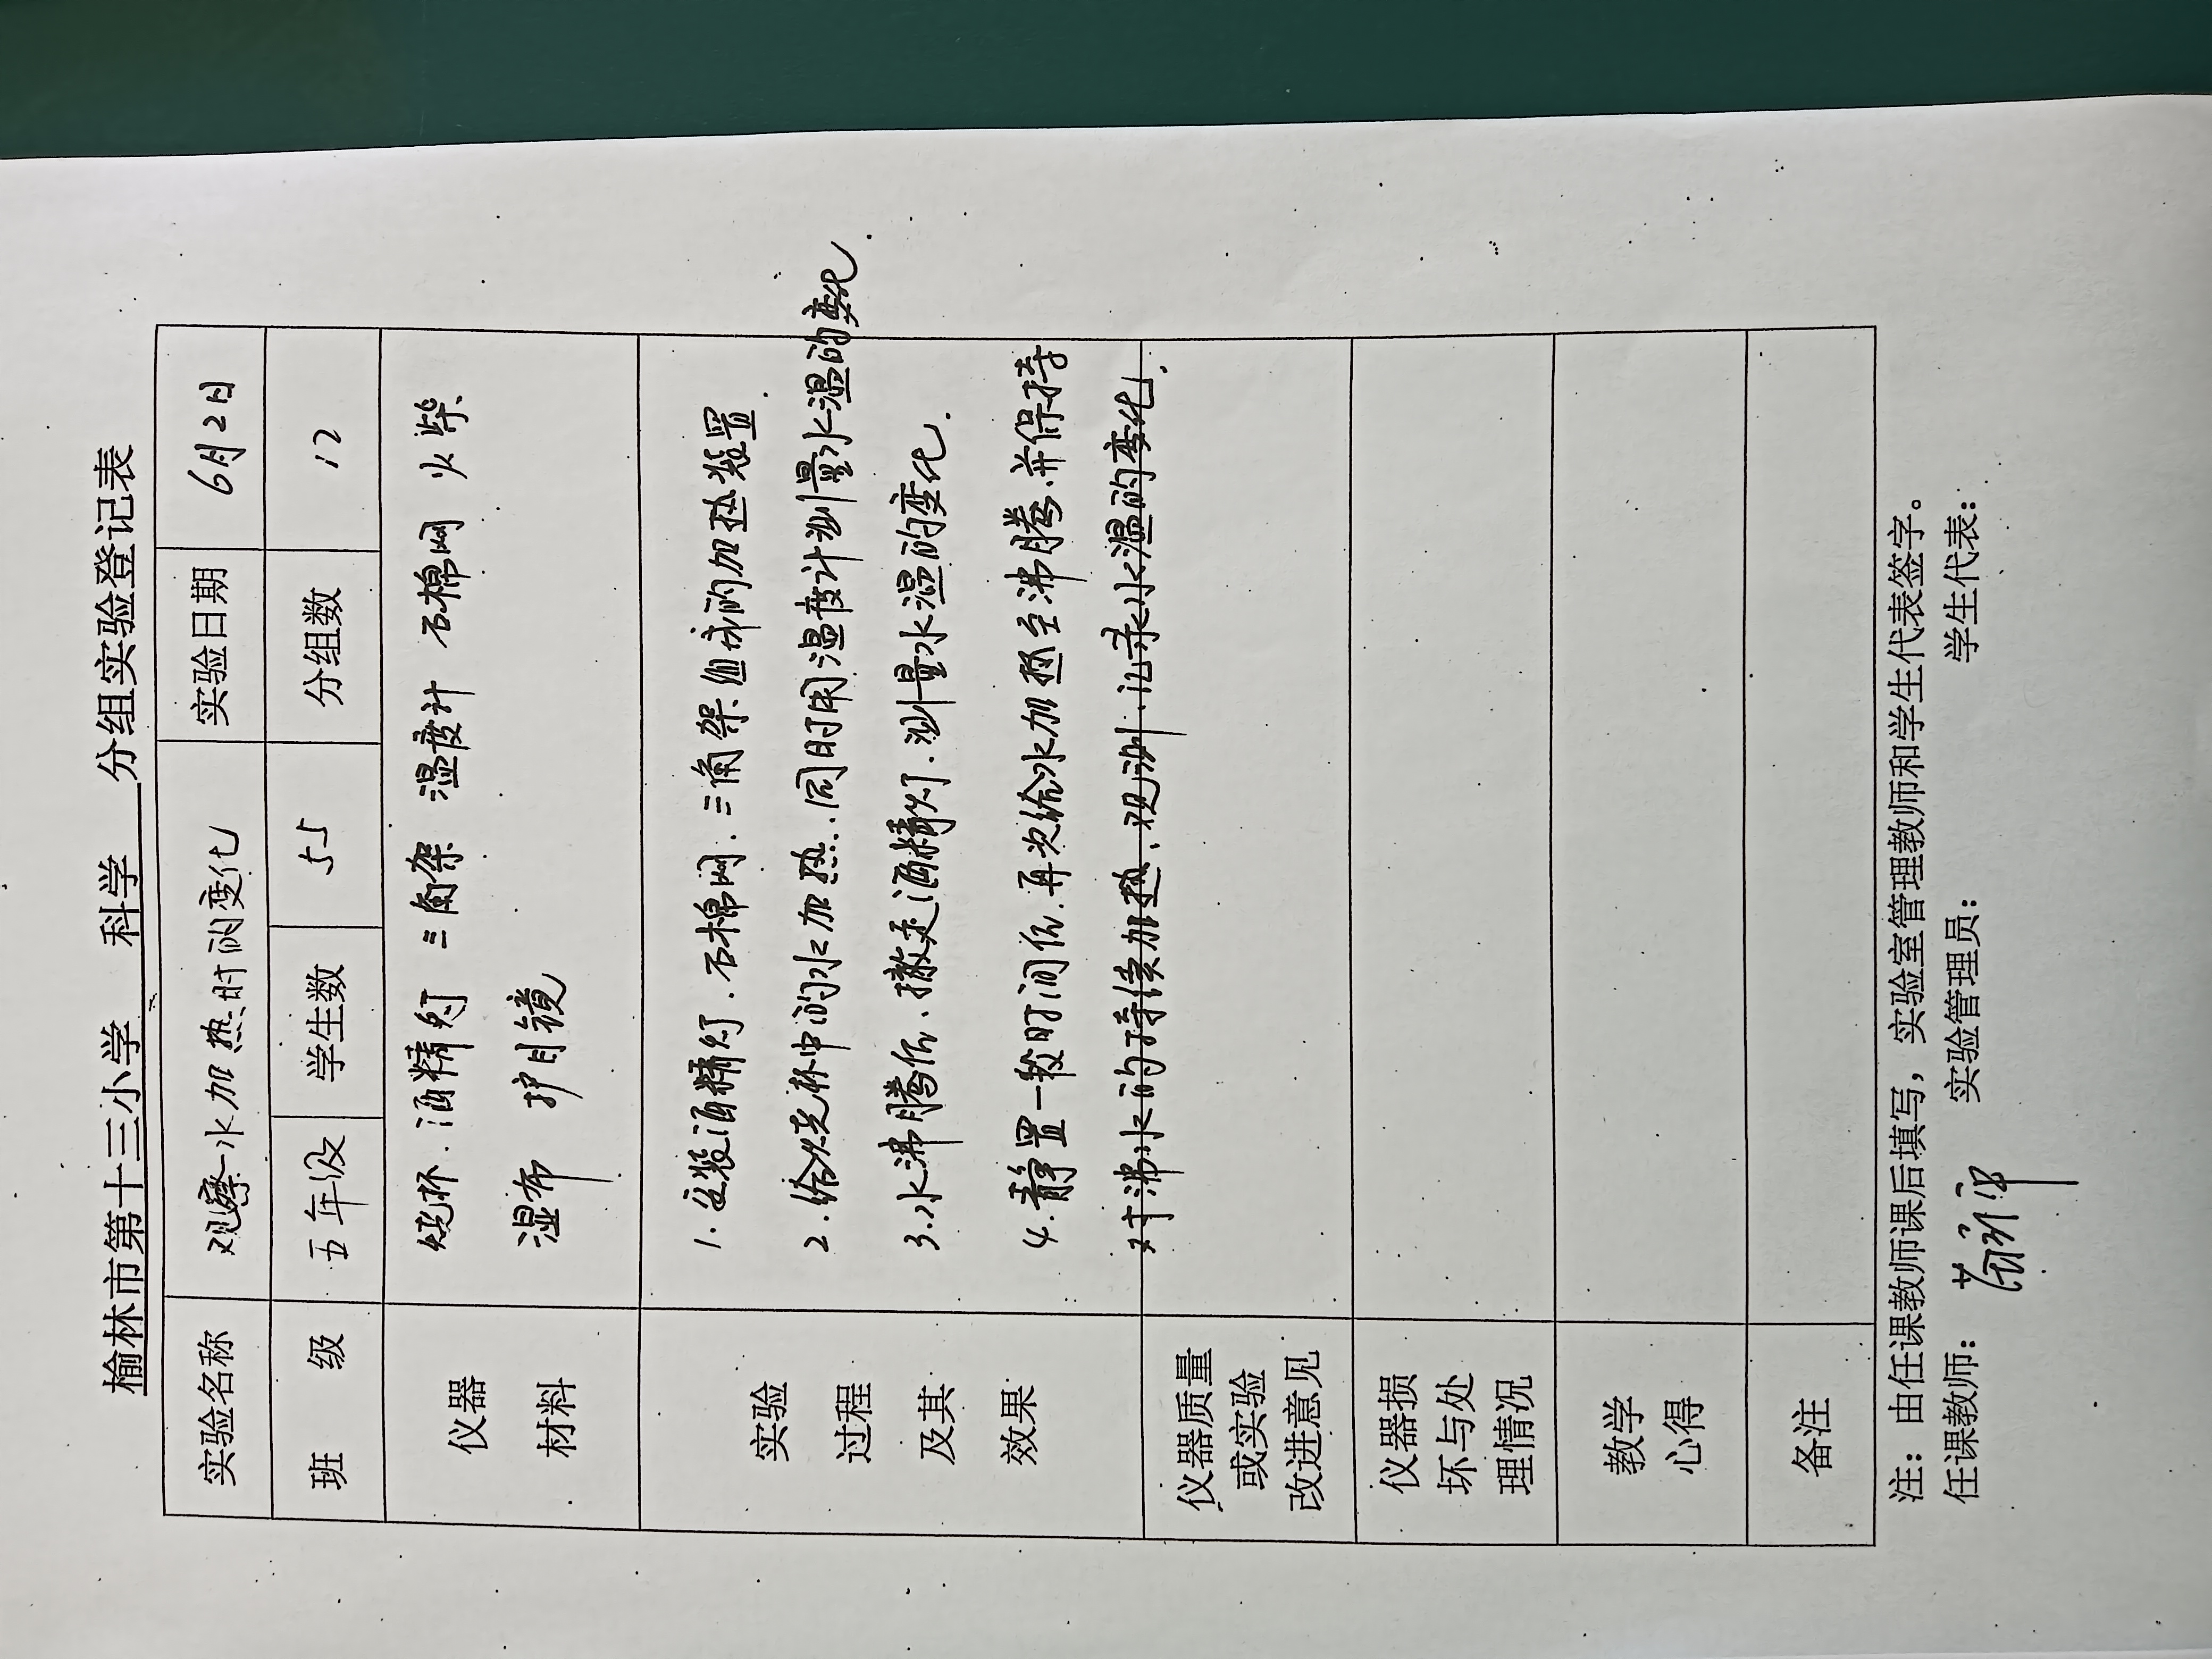 榆林市第十三小学 科学 分组实验登记表
实验名称 观察水加热时的变化 实验日期 6月2日
班 级 五年级 学生数 55 分组数 12
仪器 烧杯.酒精灯 三角架 温度计 石棉网 火柴
材料 湿布 护目镜
实验 1.安装酒精灯.石棉网.三角架组成的加热装置.
过程 2.给烧杯中的水加热..同时用温度计测量水温的变化.
及其 3.水沸腾后.撤走酒精灯.测量水温的变化.
效果 4.静置一段时间后.再次给水加热至沸腾.并保持
对沸水的持续加热.观测.记录水温的变化.
仪器质量
或实验
改进意见
仪器损
坏与处
理情况
教学
心得
备注
注：由任课教师课后填写，实验室管理教师和学生代表签字。
任课教师： 实验管理员： 学生代表：